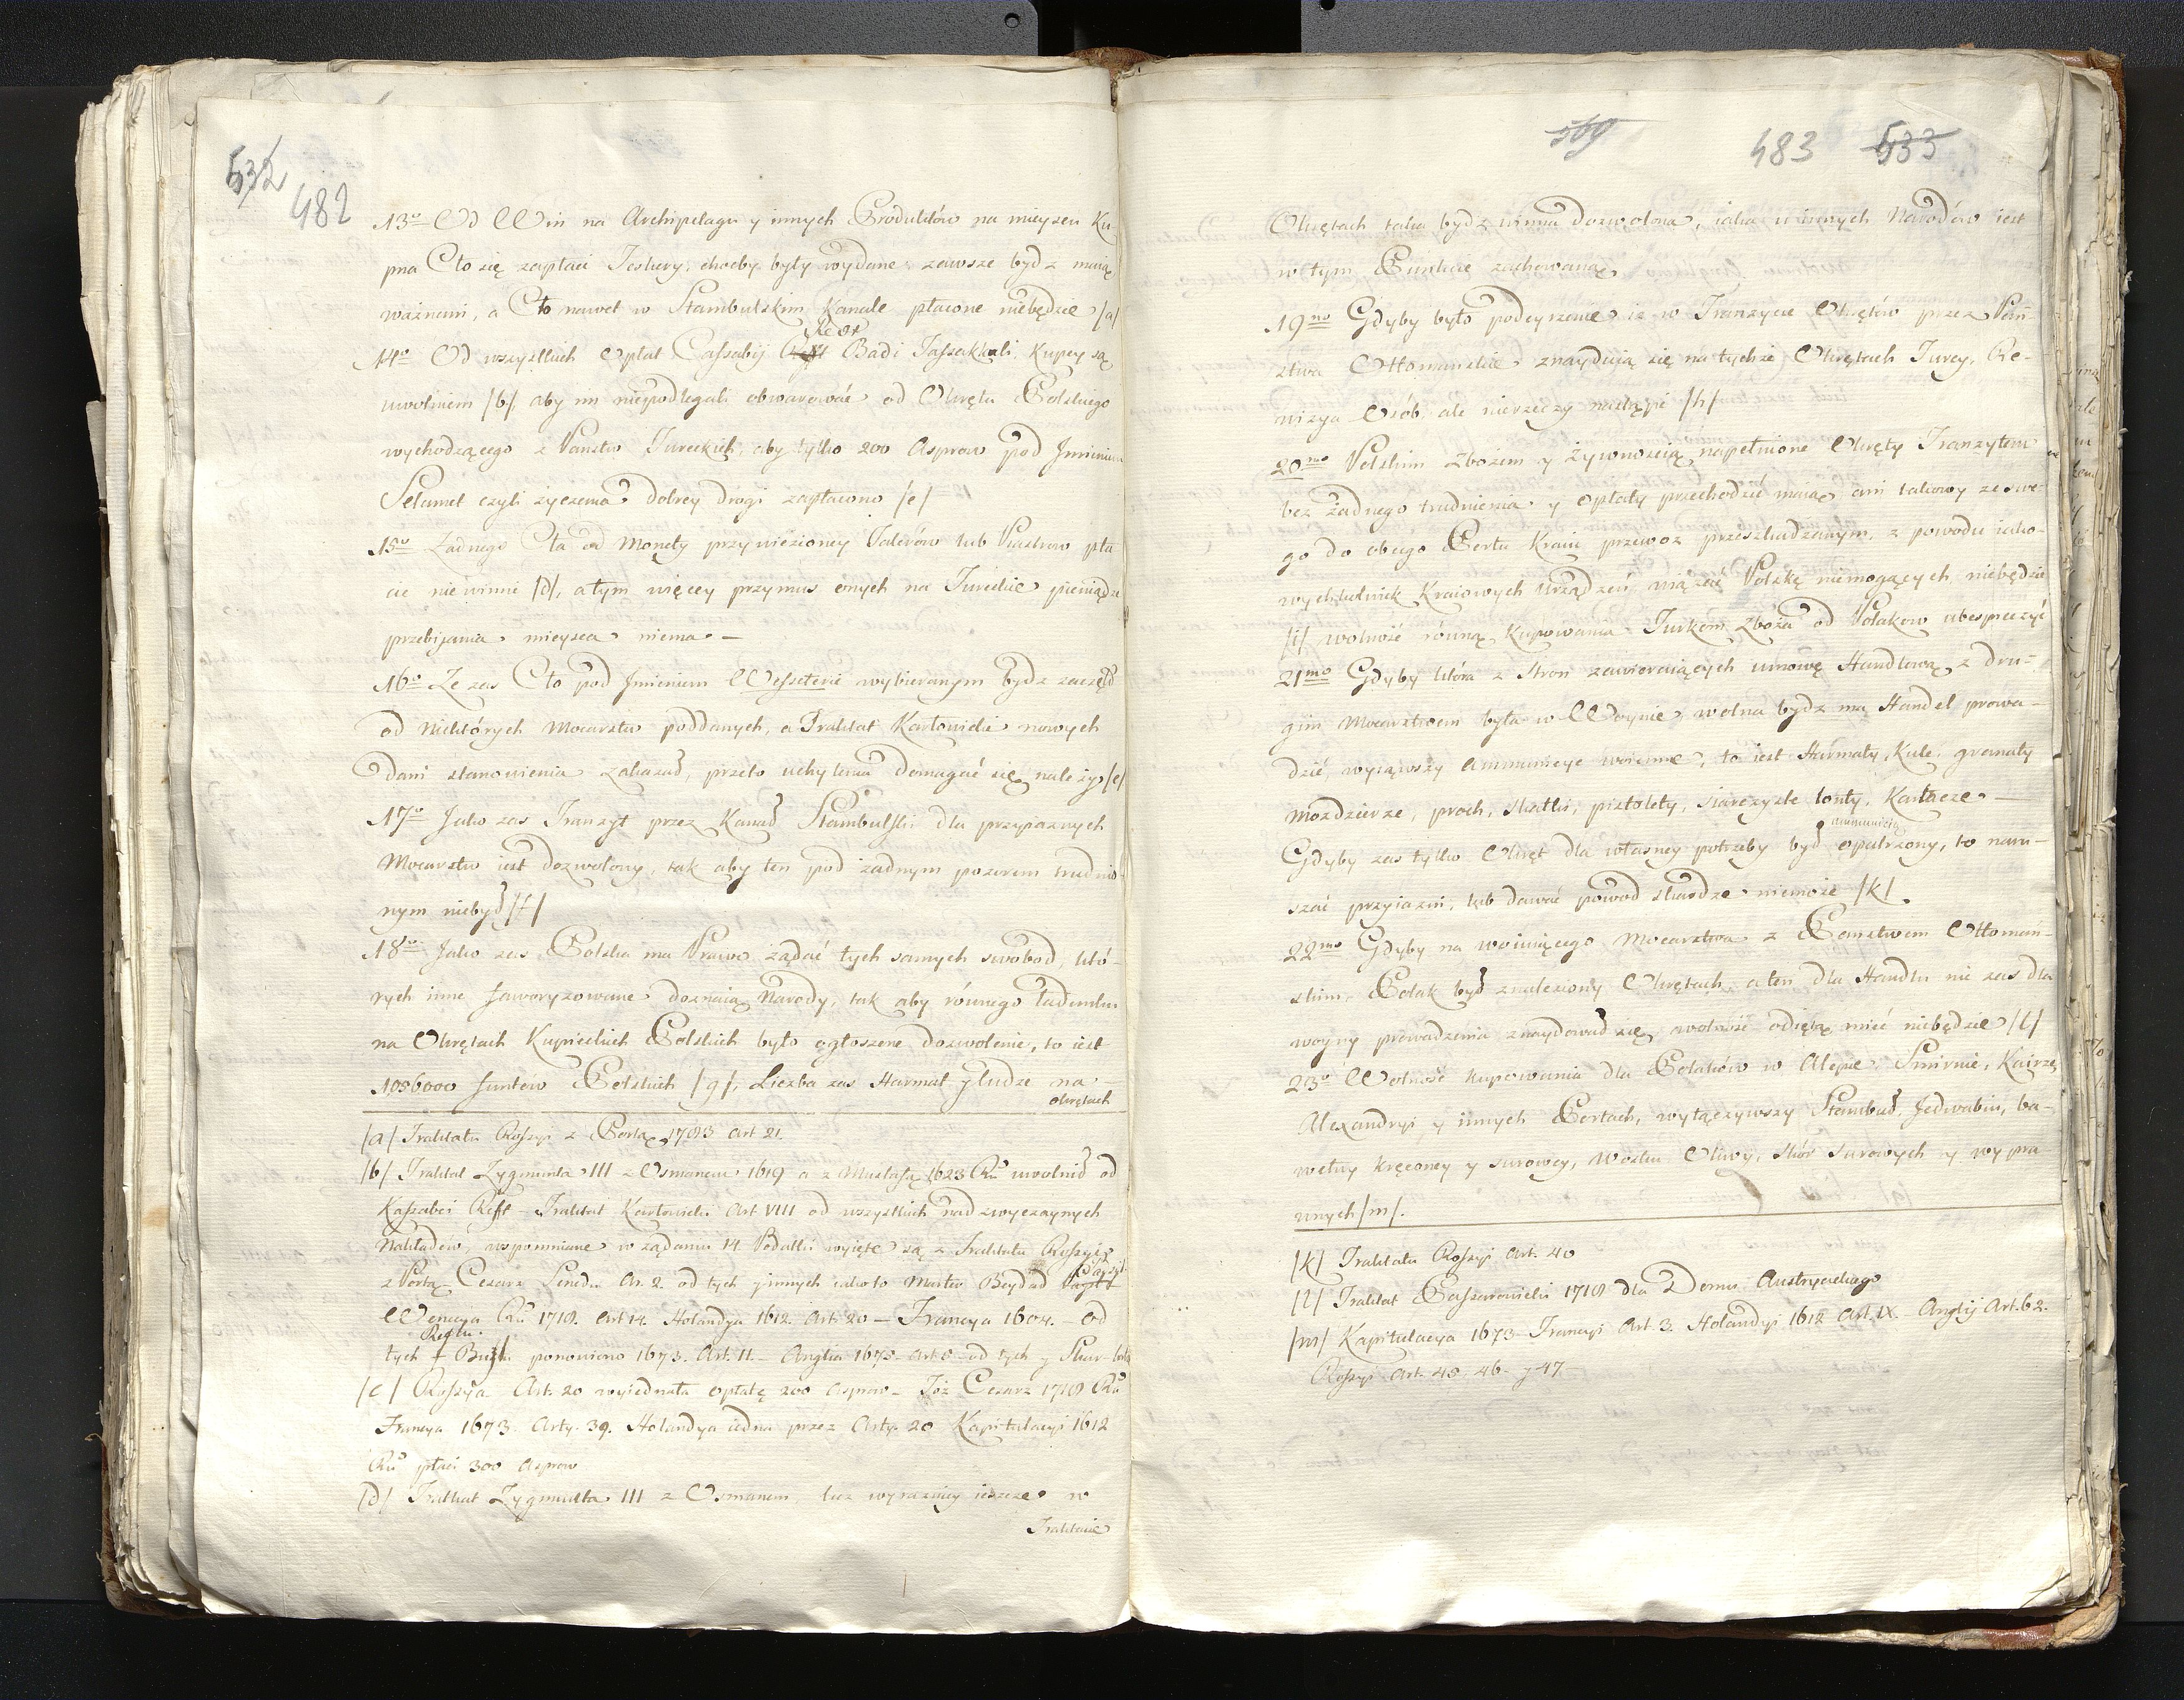 532
482
13o Od Win na Archipelagu y innych Produktów na mieyscu Ku
pna Cło się zapłaci Teskery, choćby były wydane zawsze bydz maią
ważnemi, a Cło nawet w Stambulskim Kanale płacone niebędzie /a/
Reft
14o Od wszystkich Opłat Cassabij Badi Jassakkuli, Kupcy są
uwolnieni /b/, aby im niepodlegali obwarować od Okrętu Polskiego
wychodzącego z Państw Tureckich, aby tylko 200 Asprow pod Jmieniem
Selamet czyli życzenia dobrey drogi zapłacono /c/
15o Żadnego Cła od Monety przywiezioney Talerów lub Piastrow pła
cić niewinni /d/, a tym więcey przymus onych na Tureckie pieniądze
przebijania mieysca niema –
16o Ze zas Cło pod Jmieniem Messeterie wybieranym bydz zaczęło
od niektórych Mocarstw poddanych, a Traktat Karłowicki nowych
Dani stanowienia zakazał, przeto uchylenia domagać się należy /e/
17o Jako zas Tranzyt przez Kanał Stambulski dla przyiaznych
Mocarstw iest dozwolony, tak aby ten pod żadnym pozorem trudnio-
nym niebył /f/
18o Jako zas Polska ma Prawo żądać tych samych swobod, któ-
rych inne faworyzowane doznaią Narody, tak aby równego ładunku
na Okrętach Kupieckich Polskich było ogłoszone dozwolenie, to iest
1056000 funtów Polskich /g/, Liczba zas Harmat y ludzi na –
okrętach
/a/ Traktatu Rossyi z Portą 1783 Art 21.
/b/ Traktat Zygmunta III z Osmanem 1619 a z Mustafą 1623 Ru uwolnił od
Kassabii Reft – Traktat Karłowicki Art VIII od wszystkich nadzwyczaynych
Nakładów, wspomniane w żądaniu 14. Podatki wyięte są z Traktatu Rossyi
z Portą – Cesarz Ar. 2. od tych y innych iako to
Wenecya Ru 1718. Art 14. Holandya 1612. Art. 20 – Francya 1604. – od
Reftu.
tych ponowiono 1673. Art. 11. – Anglia 1675 – Art. 8 – od tych y
/c/ Rossya Art. 20 wyiednała opłatę 200 Asprow – Toż Cesarz 1718 Ru
Francya 1673. Arty. 39. Holandya iedna przez Arty. 20 Kapitulacyi 1612
Ru płaci 300 Asprow
/d/ Traktat Zygmunta III z Osmanem lecz wyrazniey ieszcze w
Traktacie
569
483 533
Okrętach taka bydz winna dozwolona, iaka u innych Narodów iest
w tym Punkcie zachowaną
19no Gdyby było podeyrzenie iz w Tranzycie Okrętów przez Pań-
stwa Ottomanskie znayduią się na tychże Okrętach Turcy, Re-
wizya Osób, ale nierzeczy nastąpi /h/
20mo Polskim Zbożem y żywnoscią napełnione Okręty Tranzytem
bez żadnego trudnienia y opłaty przechodzić maią ani takowy ze swe-
go do obcego Portu Kraiu przewoz przeszkadzanym, z powodu iako-
wychkolwiek Kraiowych Urządzeń wiązać Polskę niemogących niebędzie
/i/ wolność równą Kupowania Turkom Zboża od Polakow ubespieczyć
21mo Gdyby która z Stron zawieraiących umowę Handlową z dru-
gim Mocarstwem była w Woynie, wolna bydz ma Handel prowa-
dzić, wyiąwszy Ammunicye woienne, to iest Harmaty, Kule, granaty
mozdzierze, proch, skałki, pistolety, siarczyste lonty, Kartacze –
ammunicią
Gdyby zas tylko Okręt dla własney potrzeby był opatrzony, to naru-
szać przyiazni, lub dawać powod skardze niemoże /k/.
22mo Gdyby na woiuiącego Mocarstwa z Państwem Ottomań-
skim, Polak był znaleziony Okrętach, a ten dla Handlu nie zas dla
woyny prowadzenia znaydował się, wolność odiętą mieć niebędzie /l/
23o Wolność kupowania dla Polaków w Alepie, Smirnie, Kairze,
Alexandryi y innych Portach, wyłączywszy Stambuł, Jedwabiu, ba-
wełny kręconey y surowey, Wosku Oliwy, skór surowych y wypra
wnych /m/.
/k/ Traktatu Rossyi Art. 40
/l/ Traktat Passarowicki 1718 dla Domu Austryackiego
/m/ Kapitulacya 1673 Francyi Art. 3. Holandyi 1612 Art. IX. Anglij Art. 62.
Rossyi Art. 45 46 – y 47 –